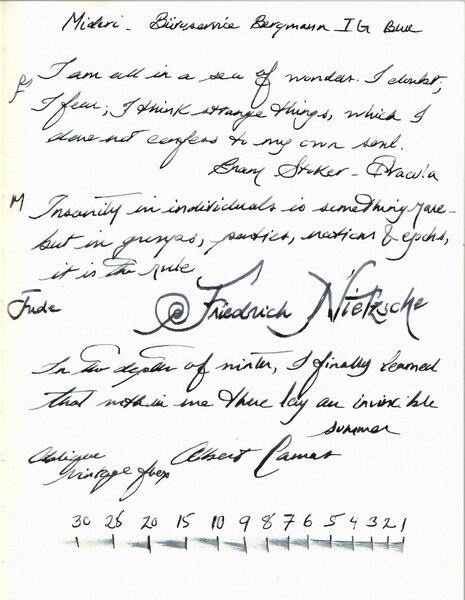 Midori - Büroservice Bergmann IG Blue
I am all in a sea of wonders. I doubt,
I fear, I think strange things, which I
dare not confess to my own soul.
Bram Stoker - Dracula
M Insanity in individuals is something rare -
but in groups, parties, nations & epochs,
it is the rule.
Fude @Friedrich Nietzsche
In the depths of winter, I finally learned
that within me there lay an invincible
summer
Albert Camus
Oblique
vintage flex
30 25 20 15 10 9 8 7 6 5 4 3 2 1